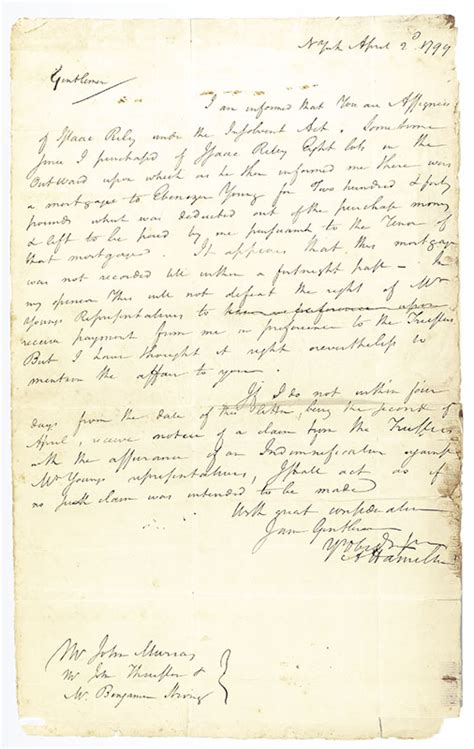 NYork April 2d 1799
Gentlemen
I am informed that You are Assignees
of Isaac Riley under the Insolvent Act. Sometime
since I purchased of Isaac Riley Eight lots in the
Out ward upon which as he then informed me there was
a mortgage to Ebenezer Young for Two hundred & forty
pounds which was deducted out of the purchase money
& left to be paid by me pursuant to the Tenor of
that mortgage. It appears that this mortgage
was not recorded till within a fortnight past — In
my opinion This will not defeat the right of Mr
Youngs Representatives to upon
receive payment from me in preference to the Trustees
But I have thought it right nevertheless to
mention the affair to you.
If I do not within four
days from the date of this letter, being the second of
April, receive notice of a claim from the Trustees
with the assurance of an Indemnification against
Mr Youngs representatives, I shall act as if
no such claim was intended to be made
With great consideration
I am Gentlemen
A Hamilton
Mr John Murray
Mr Jon Thurston &
Mr Benjamin Strong